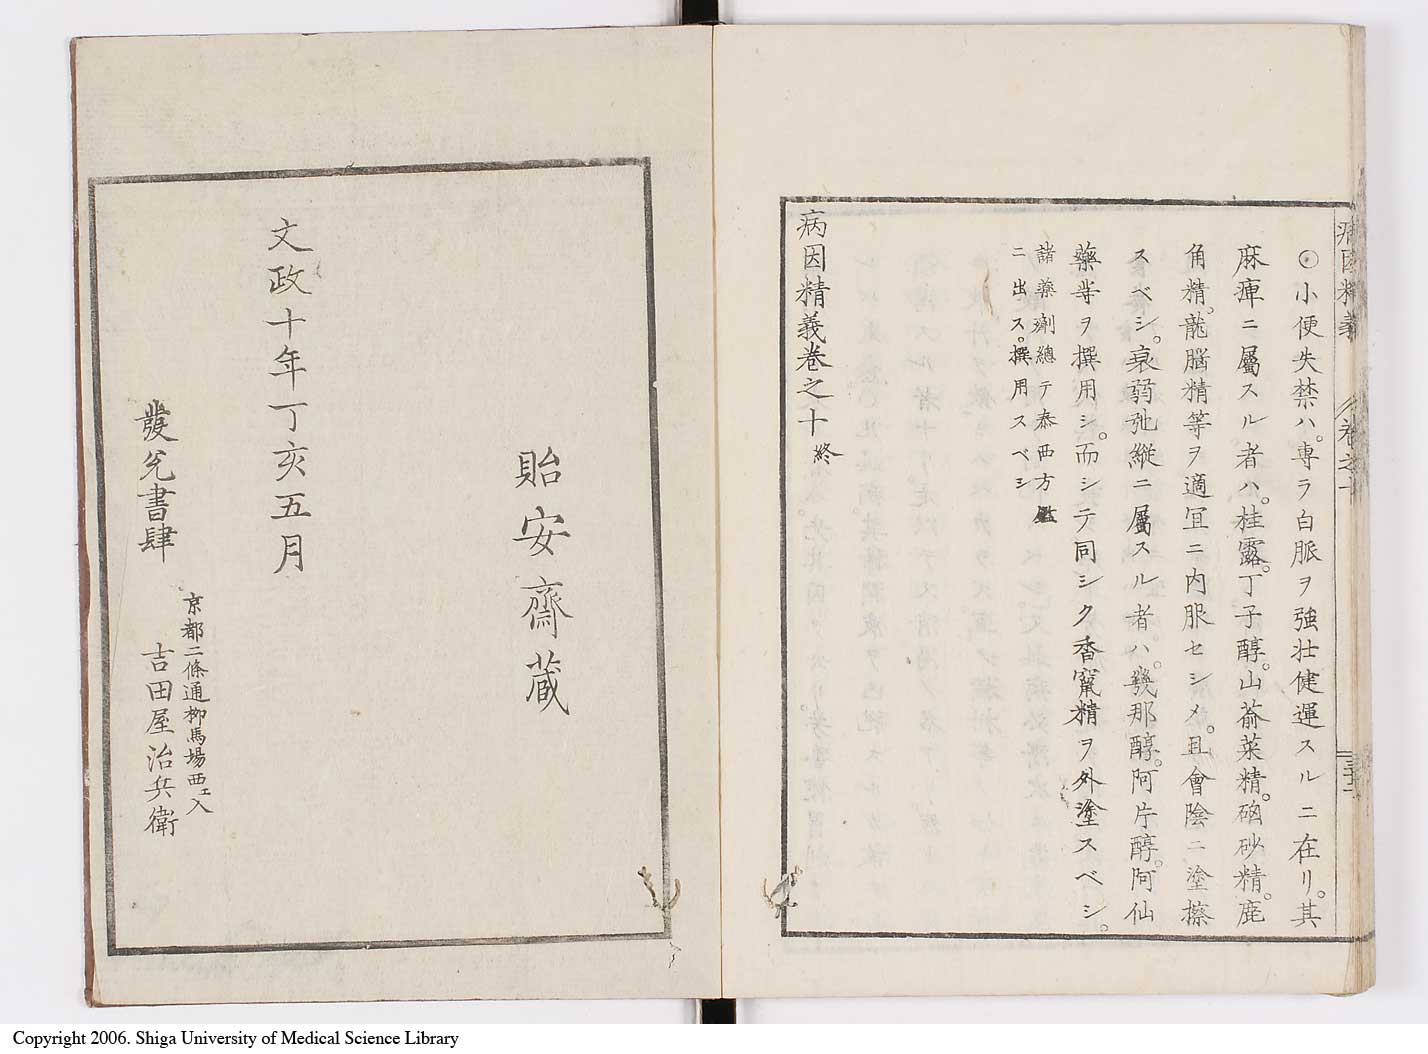 病因精義 卷之十
◯小便失禁ハ。専ラ白脈ヲ強壮健運スルニ在リ。其
麻痺ニ屬スル者ハ。桂露。丁子醇。山葊菜精。磠砂精。鹿
角精。龍脳精等ヲ適宜ニ内服セシメ。且會陰ニ塗擦
スベシ。衰弱弛縦ニ屬スル者ハ。幾那醇。阿片醇。阿仙
藥等ヲ撰用シ。而シテ同シク香竄精ヲ外塗スベシ。
諸薬劑總テ泰西方鑑
ニ出ス。撰用スベシ
病因精義卷之十終
貽安齋蔵
文政十年丁亥五月
發兌書肆
京都二條通柳馬場西エ入
吉田屋治兵衛
Copyright 2006. Shiga University of Medical Science Library